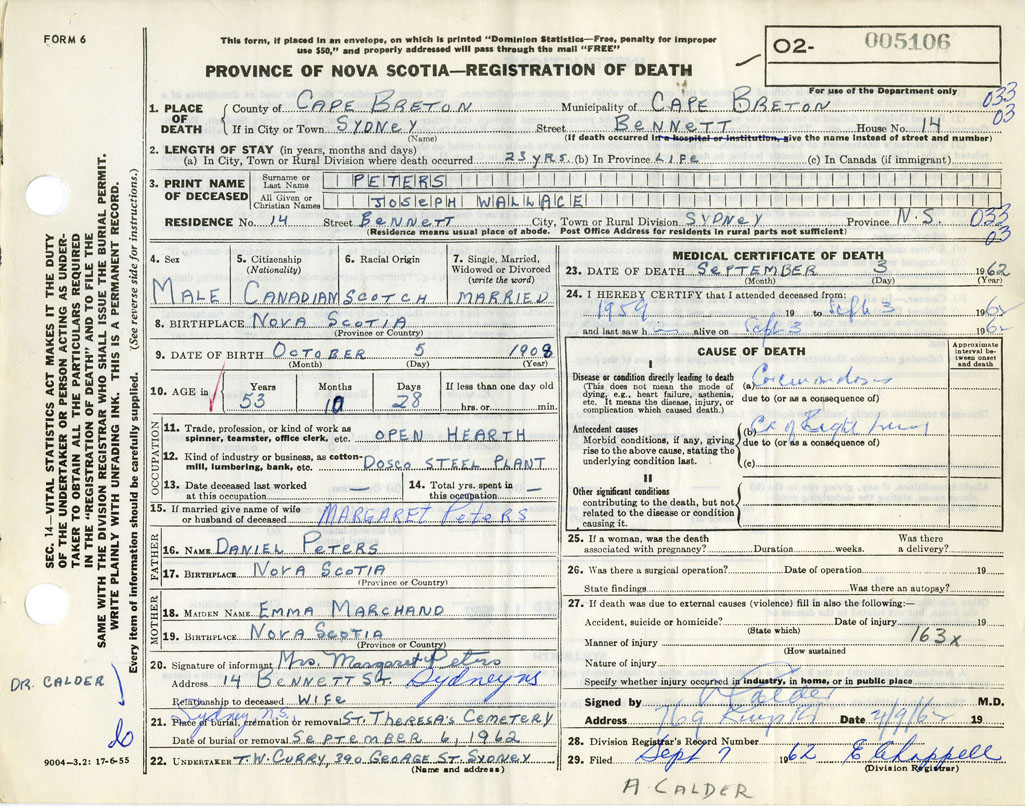 FORM 6
This form, if placed in an envelope, on which is printed "Dominion Statistics—Free, penalty for improper
use $50," and properly addressed will pass through the mail "FREE"
O2- 005106
PROVINCE OF NOVA SCOTIA—REGISTRATION OF DEATH
For use of the Department only
1. PLACE OF DEATH County of CAPE BRETON Municipality of CAPE BRETON 033
03
If in City or Town SYDNEY Street BENNETT House No. 14
(Name) (If death occurred in a hospital or institution, give the name instead of street and number)
2. LENGTH OF STAY (in years, months and days)
(a) In City, Town or Rural Division where death occurred 23 YRS. (b) In Province LIFE (c) In Canada (if immigrant)
3. PRINT NAME OF DECEASED
Surname or Last Name PETERS
All Given or Christian Names JOSEPH WALLACE
RESIDENCE No. 14 Street BENNETT City, Town or Rural Division SYDNEY Province N.S. 033
03
(Residence means usual place of abode. Post Office Address for residents in rural parts not sufficient)
4. Sex
MALE
5. Citizenship
(Nationality)
CANADIAN
6. Racial Origin
SCOTCH
7. Single, Married,
Widowed or Divorced
(write the word)
MARRIED
8. BIRTHPLACE NOVA SCOTIA
(Province or Country)
9. DATE OF BIRTH OCTOBER 5 1908
(Month) (Day) (Year)
10. AGE in
Years Months Days If less than one day old
53 10 28 hrs. or min.
OCCUPATION
11. Trade, profession, or kind of work as
spinner, teamster, office clerk, etc. OPEN HEARTH
12. Kind of industry or business, as cotton-
mill, lumbering, bank, etc. DOSCO STEEL PLANT
13. Date deceased last worked
at this occupation —
14. Total yrs. spent in
this occupation —
15. If married give name of wife
or husband of deceased MARGARET PETERS
FATHER
16. NAME DANIEL PETERS
17. BIRTHPLACE NOVA SCOTIA
(Province or Country)
MOTHER
18. MAIDEN NAME EMMA MARCHAND
19. BIRTHPLACE NOVA SCOTIA
(Province or Country)
20. Signature of informant Mrs. Margaret Peters
Address 14 BENNETT St. Sydney ns
Relationship to deceased WIFE
Sydney n.s.
21. Place of burial, cremation or removal ST. THERESA'S CEMETERY
Date of burial or removal SEPTEMBER 6, 1962
22. UNDERTAKER T.W. CURRY, 390 GEORGE ST. SYDNEY
(Name and address)
MEDICAL CERTIFICATE OF DEATH
23. DATE OF DEATH SEPTEMBER 3 1962
(Month) (Day) (Year)
24. I HEREBY CERTIFY that I attended deceased from:
1959 19 to Sept 3 1962
and last saw h alive on Sept 3 1962
CAUSE OF DEATH
Approximate
interval be-
tween onset
and death
I
Disease or condition directly leading to death
(This does not mean the mode of
dying, e.g., heart failure, asthenia,
etc. It means the disease, injury, or
complication which caused death.)
(a) Carcinomatosis
due to (or as a consequence of)
Antecedent causes
Morbid conditions, if any, giving
rise to the above cause, stating the
underlying condition last.
(b) Ca of Right lung
due to (or as a consequence of)
(c)
II
Other significant conditions
contributing to the death, but not
related to the disease or condition
causing it.
25. If a woman, was the death
associated with pregnancy? Duration weeks. Was there
a delivery?
26. Was there a surgical operation? Date of operation 19
State findings Was there an autopsy?
27. If death was due to external causes (violence) fill in also the following:—
Accident, suicide or homicide? Date of injury 19
(State which)
Manner of injury 163x
(How sustained
Nature of injury
Specify whether injury occurred in industry, in home, or in public place
Signed by A Calder M.D.
Address 769 Date 4/9/62 19
28. Division Registrar's Record Number
29. Filed Sept 7 1962 E Chappell
(Division Registrar)
A CALDER
SEC. 14—VITAL STATISTICS ACT MAKES IT THE DUTY
OF THE UNDERTAKER OR PERSON ACTING AS UNDER-
TAKER TO OBTAIN ALL THE PARTICULARS REQUIRED
IN THE "REGISTRATION OF DEATH" AND TO FILE THE
SAME WITH THE DIVISION REGISTRAR WHO SHALL ISSUE THE BURIAL PERMIT.
WRITE PLAINLY WITH UNFADING INK. THIS IS A PERMANENT RECORD.
Every item of information should be carefully supplied. (See reverse side for instructions.)
DR. CALDER
9004—3.2: 17-6-55